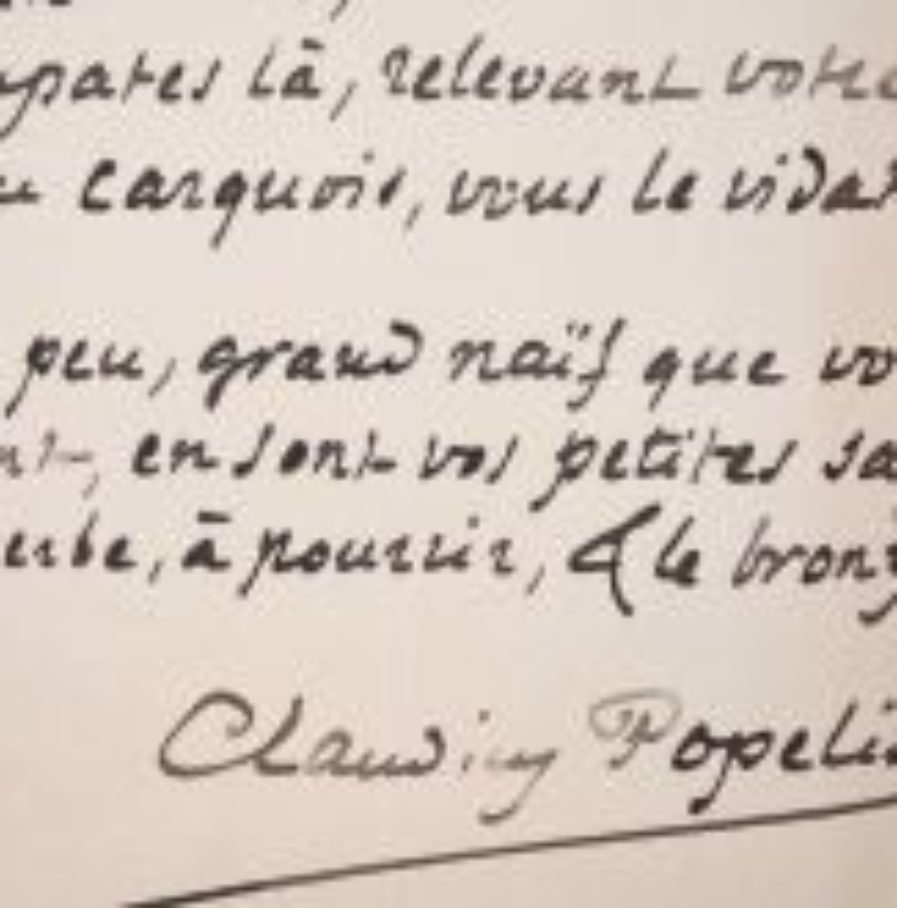 là, relevant votre
carquois, vous le vidat
peu, grand naïf que vo
en sont vos petites sa
erbe, à pourrir, & le bronz
Claudius Popelin